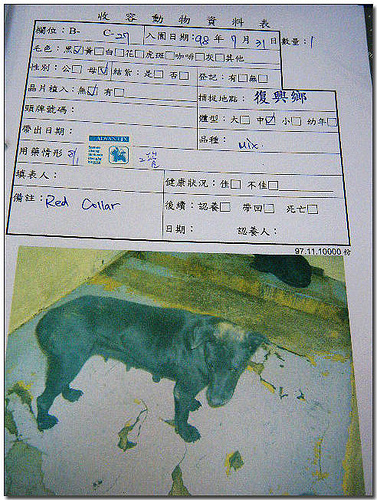 收容動物資料表
欄位：B- C-27 入園日期：98年7月31日 數量：1
毛色：黑☑白□花□虎斑□咖啡□灰□其他
性別：公□ 母☑ 結紮：是□ 否□ 登記：有□無□
晶片植入：無☑ 有□ 捕捉地點：復興鄉
頸牌號碼： 體型：大□ 中☑ 小□ 幼年□
帶出日期： 品種：Mix
ADVANTIX
用藥情形 8/1
填表人： 健康狀況：佳□ 不佳□
備註：Red Collar 後續：認養□ 帶回□ 死亡□
日期： 認養人：
97.11.10000份